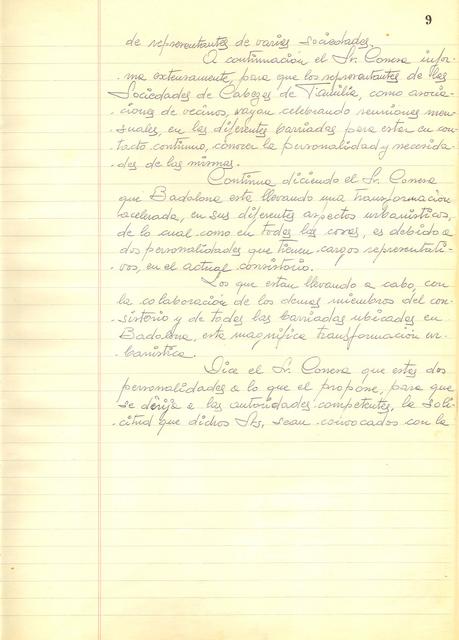 9
de representantes de varias sociedades.
A continuación el Sr. Conesa infor-
-ma extensamente, para que los representantes de las
Sociedades de Cabezas de Familia, como asocia-
-ciones de vecinos, vayan celebrando reuniones men-
-suales, en las diferentes barriadas para estar en con-
-tacto continuo, conocer la personalidad y necesida-
-des de las mismas.
Continua diciendo el Sr. Conesa
que Badalona esta llevando una transformación
acelerada, en sus diferentes aspectos urbanisticos,
de lo cual como en todas las cosas, es debido a
dos personalidades que tienen cargos representati-
-vos, en el actual consistorio.
Los que estan llevando a cabo, con
la colaboración de los demas miembros del con-
-sistorio y de todas las barriadas ubicadas en
Badalona, esta magnifica transformación ur-
-banistica.
Dice el Sr. Conesa que estas dos
personalidades a lo que el propone, para que
se dirija a las autoridades competentes, la soli-
-citud que dichos Srs, sean convocados con la